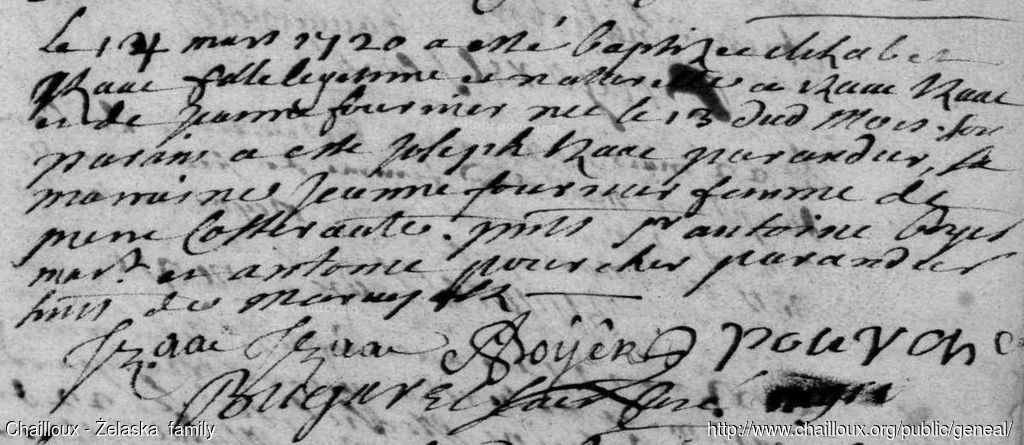 le 14 mars 1720 a esté baptizée elizabet
Izaac fille legitime et naturelle a Izaac Izaac
et de Jeanne fournier née le 13 dud mois. son
parin a esté Joseph Izaac parandier, sa
marraine Jeanne fournier femme de
pierre Costeraute. pnts Sr antoine boyer
mart et antoine pourcher parandier
hnts de
Izaac Izaac Boyer pourche
Chailloux - Żelaska family http://www.chailloux.org/public/geneal/